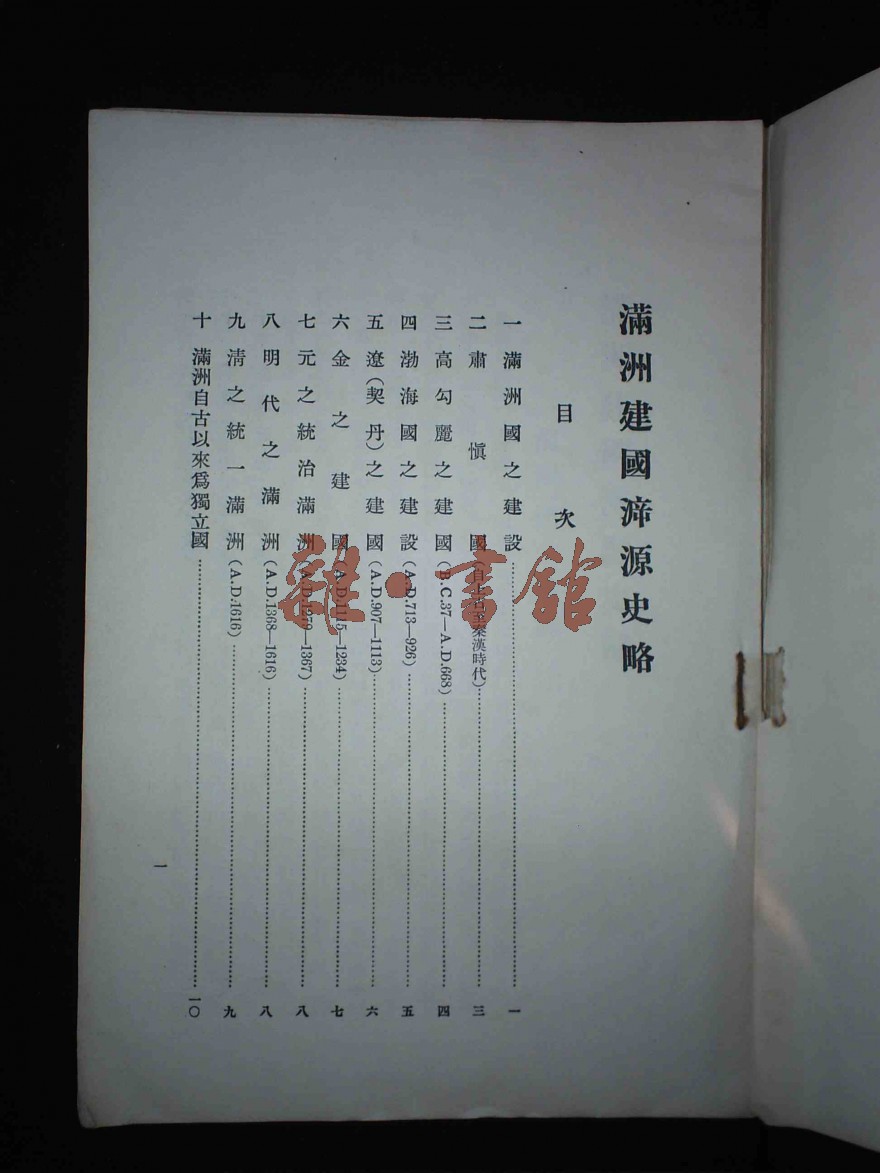 滿洲建國滂源史略
目次
一 滿洲國之建設……一
二 肅愼國(自上古至秦漢時代)……三
三 高勾麗之建國(B.C.37—A.D.668)……四
四 渤海國之建設(A.D.713—926)……五
五 遼(契丹)之建國(A.D.907—1113)……六
六 金之建國(A.D.1115—1234)……七
七 元之統治滿洲(A.D.1279—1367)……八
八 明代之滿洲(A.D.1368—1616)……八
九 淸之統一滿洲(A.D.1616)……九
十 滿洲自古以來爲獨立國……一〇
一
雜·書館